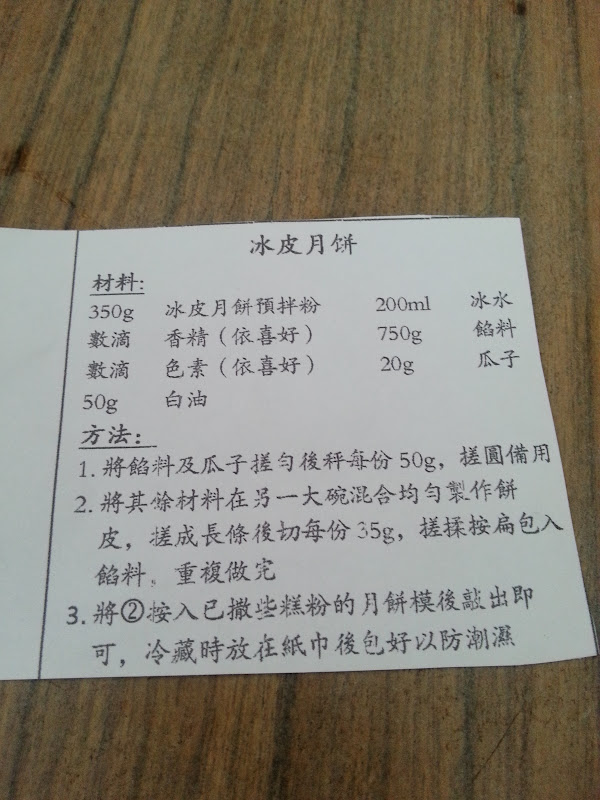 冰皮月饼
材料:
350g 冰皮月餅預拌粉 200ml 冰水
數滴 香精(依喜好) 750g 餡料
數滴 色素(依喜好) 20g 瓜子
50g 白油
方法:
1. 將餡料及瓜子搓勻後秤每份50g，搓圓備用
2. 將其餘材料在另一大碗混合均勻製作餅
皮，搓成長條後切每份35g，搓揉按扁包入
餡料。重複做完
3. 將②按入已撒些糕粉的月餅模後敲出即
可，冷藏時放在紙巾後包好以防潮濕